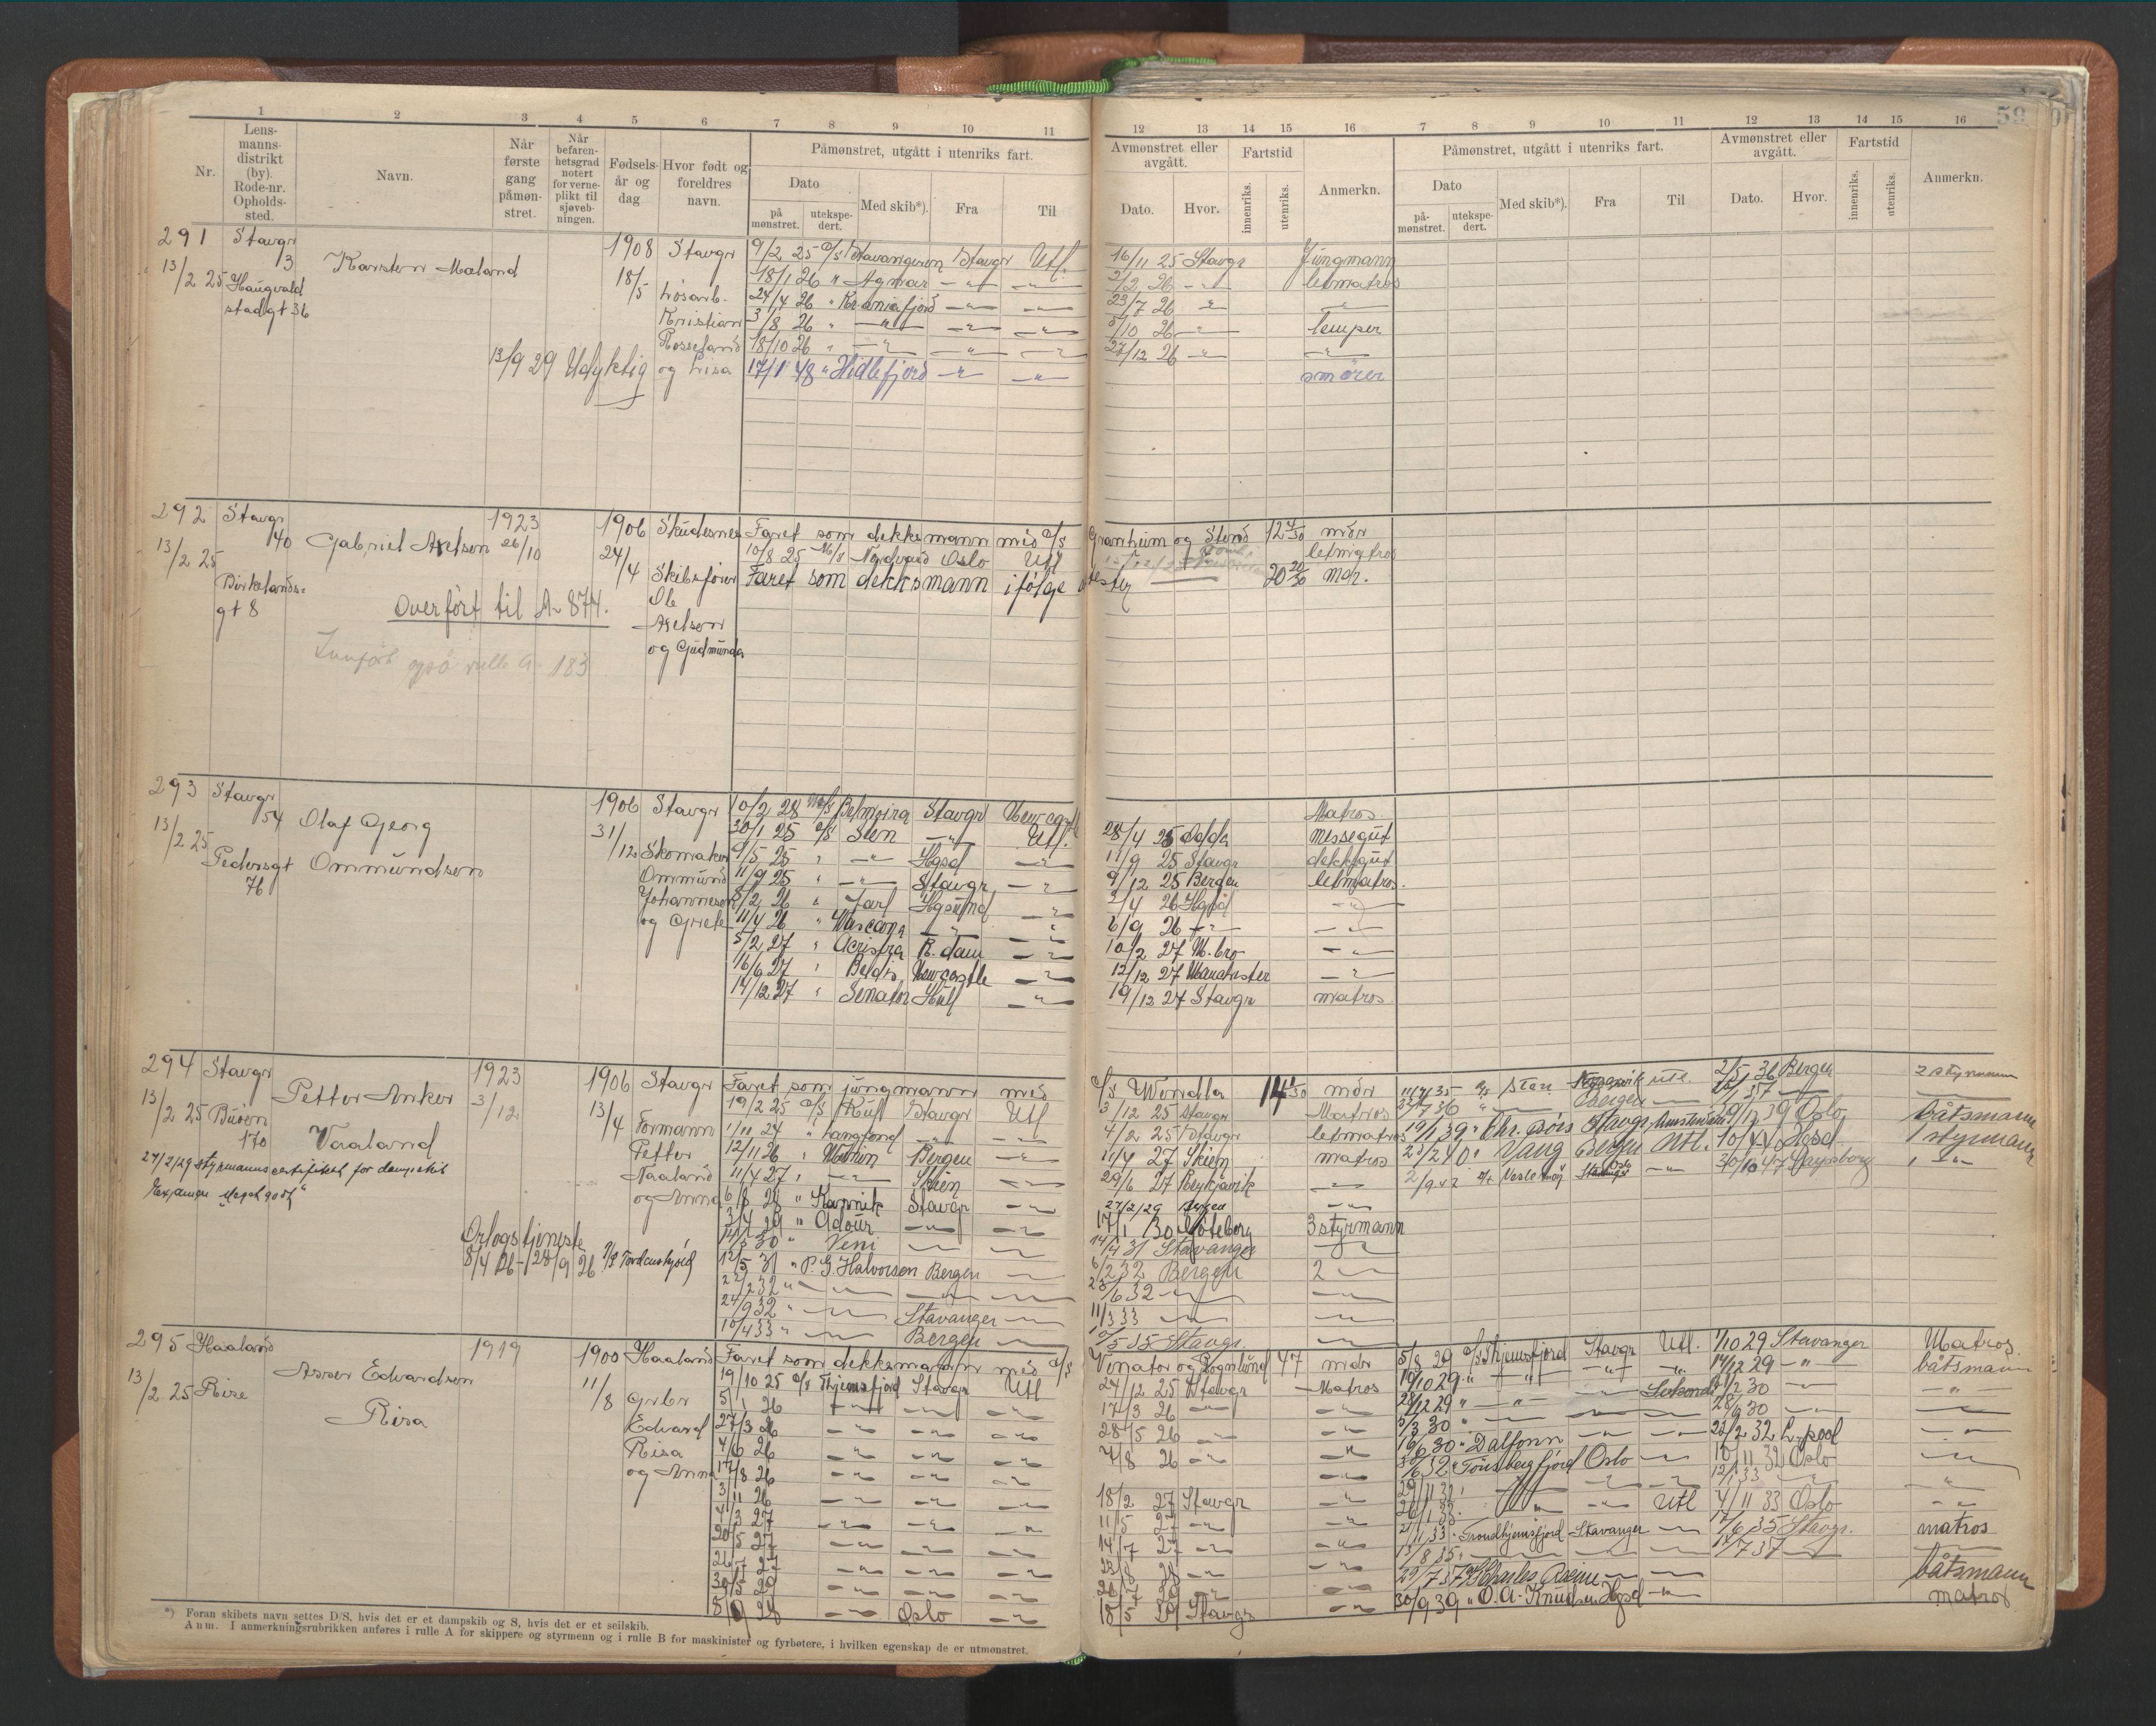 59
1 2 3 4 5 6 7 8 9 10 11
Nr.
Lens-
manns-
distrikt
(by).
Rode-nr.
Opholds-
sted.
Navn.
Når
første
gang
påmøn-
stret.
Når
befaren-
hetsgrad
notert
for verne-
plikt til
sjøveb-
ningen.
Fødsels-
år og
dag
Hvor født og
foreldres
navn.
Påmønstret, utgått i utenriks fart.
Dato
på
mønstret.
utekspe-
dert.
Med skib*).
Fra
Til
12 13 14 15 16 7 8 9 10 11 12 13 14 15 16
Avmønstret eller
avgått.
Dato.
Hvor.
Fartstid
innenriks.
utenriks.
Anmerkn.
Påmønstret, utgått i utenriks fart.
Dato
på-
mønstret.
utekspe-
dert.
Med skib*).
Fra
Til
Avmønstret eller
avgått.
Dato.
Hvor.
Fartstid
innenriks.
utenriks.
Anmerkn.
291 Stavgr
3
13/2 25 Haugvald
stadgt 36
Karsten Mæland
13/9 29 Udyktig
1908
18/5
Stavgr
Løsarb.
Kristian
Rosseland
og Lisa
9/2 25 D/S Stavangeren Stavgr Utl. 16/11 25 Stavgr Jungmann
18/1 26 " Agmar -"- -"- 2/2 26 -"- letmatros
24/4 26 " Kr.aniafjord -"- -"- 23/7 26 -"- -"-
3/8 26 " -"- -"- -"- 5/10 26 -"- lemper
18/10 26 " -"- -"- -"- 27/12 26 -"- -"-
17/1 48 " Hidlefjord -"- -"- smører
292 Stavgr
40
13/2 25
Birkelands-
gt 8
Gabriel Axelsen
1923
26/10
1906
24/4
Skudesnes
Skibsfører
Ole
Axelsen
og Gudmunda
Overført til A 874.
også rulle A 183
Faret som dekksmann med D/S Granheim og Stord 12 4/30 mdr
10/8 25 M/S Nordvard Oslo Utl letmatros
Faret som dekksmann ifølge attester 20 20/30 mdr.
293 Stavgr
54
13/2 25
Pedersgt
76
Olaf Georg
Ommundsen
1906
31/12
Stavgr
Skomaker
Ommund
Johannesen
og Grete
10/2 28 M/S Belmoira Stavgr Newcastle Matros
30/1 25 D/S Sten -"- Utl. 28/4 25 Odda Messegut
9/5 25 " -"- Hgsd -"- 11/9 25 Stavgr dekksgut
11/9 25 " -"- Stavgr -"- 9/12 25 Bergen letmatros.
8/2 26 " Jarl Hgsund -"- 2/4 26 Hgsd -"-
11/4 26 " Wascana -"- -"- 6/9 26 -"- -"-
5/2 27 " R.dam -"- 10/2 27 M.bro -"-
16/6 27 " Beldis Newcastle -"- 12/12 27 Manchester -"-
14/12 27 " Senator Hull -"- 19/12 27 Stavgr matros
294 Stavgr
13/2 25 Buøen
170
Petter Anker
Vaaland
1923
3/12
1906
13/4
Stavgr
Formann
Petter
Vaaland
og Anna
27/2/29 styrmannscertifikat for dampskib
Orlogstjeneste
8/4 26 - 28/9 26 P/S Tordenskjold
Faret som jungmann med D/S Wondla 14 1/30 mdr
19/2 25 D/S Kull Stavgr Utl 3/12 25 Stavgr Matros
1/11 24 " Langfond -"- -"- 4/2 25 Stavgr letmatros
12/11 26 " Bergen -"- 11/4 27 Skien matros
11/4 27 " -"- Skien -"- 29/6 27 Reykjavik -"-
6/8 28 " Karmik Stavgr -"- 27/2/29 Bergen -"-
3/4 29 " Adour -"- -"- 17/1 30 Göteborg 3 styrmann
30 " Veni -"- -"- 14/4 31 Stavanger -"-
12/5 31 " P. G. Halvorsen Bergen -"- 6/2 32 Bergen 2 -"-
22/2 32 " -"- -"- -"- 25/6 32 -"- -"-
24/9 32 " -"- Stavanger -"- 11/3 33 -"- -"-
10/4 33 " -"- Bergen -"- 5 35 Stavgr. -"-
35 D/S Sten Utl. 2/5 36 Bergen 2 styrmann
36 " -"- Bergen -"- 37 -"-
19/1 39 " Chr. Stavgr, Amsterdam 29/12 39 Oslo båtsmann
23/2 40 " Vang Bergen Utl. 10/4 40 Hgsd. 1 styrmann
2/9 47 Vesle Oslo -"- 30/10 47 Sarpsborg " -"-
295 Haaland
13/2 25 Risa
Asser Edvardsen
Risa
1919
1900
11/8
Haaland
Grbr
Edvard
Risa
og Anna
Faret som dekksmann med D/S Venator og Rognlund 47 mdr
19/10 25 D/S Thjemsfjord Stavgr Utl 24/12 25 Stavgr Matros
5/1 26 -"- -"- -"- 17/3 26 -"- -"-
27/3 26 -"- -"- -"- 28/5 26 -"- -"-
4/6 26 -"- -"- -"- 7/8 26 -"- -"-
17/8 26 -"- -"- -"- -"-
3/11 26 -"- -"- -"- 18/2 27 Stavgr -"-
4/3 27 -"- -"- -"- 11/5 27 -"- -"-
20/5 27 -"- -"- -"- 14/7 27 -"- -"-
26/7 27 -"- -"- -"- 28 -"- -"-
30/5 29 -"- -"- -"- -"- -"-
8/9 28 -"- Oslo -"- 18/5 29 Stavgr -"-
5/8 29 D/S Thjemsfjord Stavgr Utl. 1/10 29 Stavanger Matros
10/10 29 " -"- -"- -"- 14/12 29 -"- båtsmann
28/12 29 " -"- -"- 2 30 -"- -"-
5/3 30 " -"- -"- -"- 28/6 30 -"- -"-
16/6 30 " Dalfonn -"- -"- 22/2 32 L.pool -"-
6 32 " Tønsbergfjord Oslo -"- 10/11 32 Oslo -"-
29/11 32 " -"- -"- -"- 12/1 33 -"- -"-
26/1 33 " -"- -"- Utl 4/11 33 Oslo -"-
21/11 33 " Trondhjemsfjord Stavanger -"- 17/6 35 Stavgr. matros
13/8 35 " -"- -"- -"- 7 37 -"-
29/7 37 Charles Racine -"- -"- båtsmann
30/9 39 " O. A. Knudsen Hgsd -"- matros
*) Foran skibets navn settes D/S, hvis det er et dampskib og S, hvis det er et seilskib.
Anm. I anmerkningsrubrikken anføres i rulle A for skippere og styrmenn og i rulle B for maskinister og fyrbøtere, i hvilken egenskap de er utmønstret.